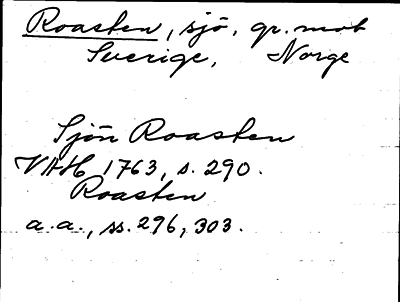 Roasten, sjö, gr. mot
Sverige, Norge
Sjön Roasten
VAH 1763, s. 290.
Roasten
a.a., ss. 296, 303.